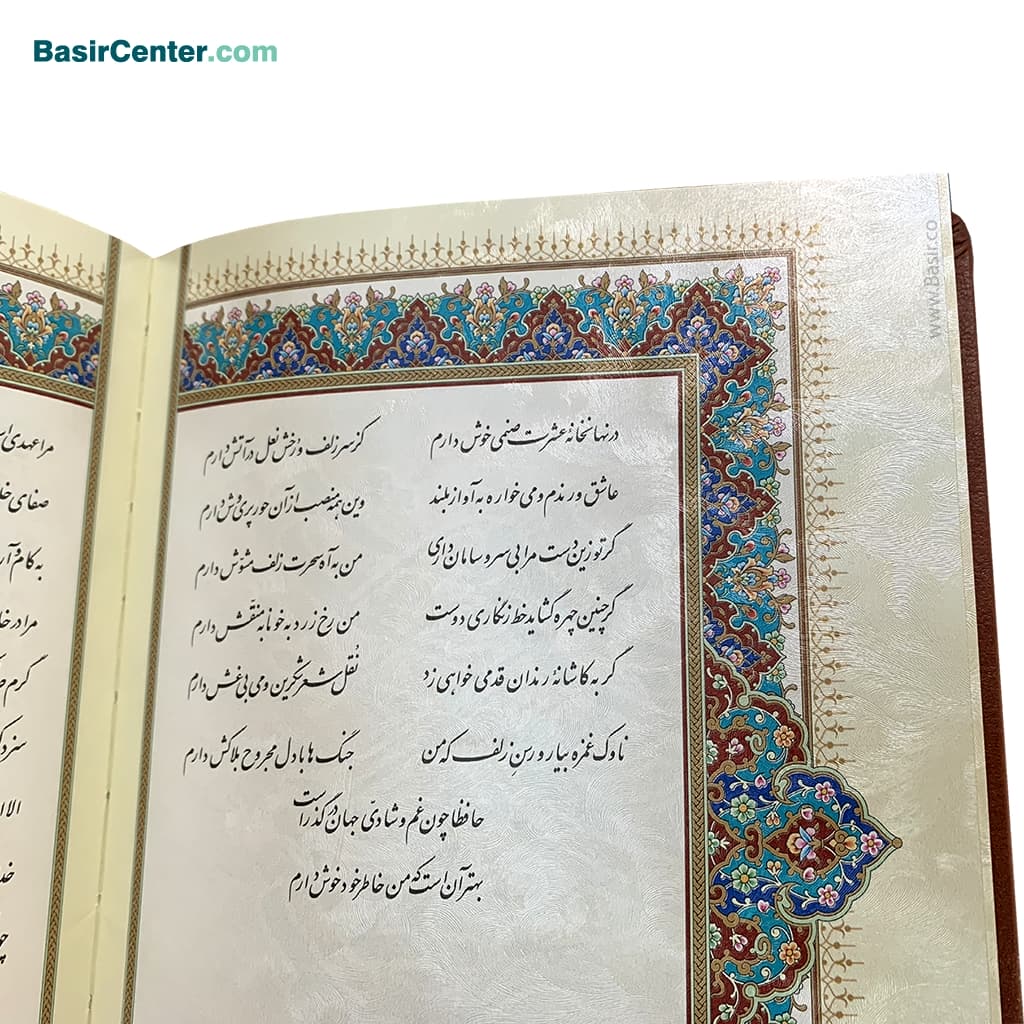 BasirCenter.com
www.Basir.co
در نهانخانهٔ عشرت صنمی خوش دارم
کز سر زلف و رخش نعل در آتش دارم
عاشق و رندم و می خواره به آواز بلند
وین همه منصب از آن حور پریوش دارم
گر تو زین دست مرا بی سر و سامان داری
من به آه سحرت زلف مشوّش دارم
گر چنین چهره گشاید خط زنگاری دوست
من رخ زرد به خونابه منقّش دارم
گر به کاشانهٔ رندان قدمی خواهی زد
نُقل شعر شکرین و می بی غش دارم
ناوک غمزه بیار و رسنِ زلف که من
جنگ ها با دل مجروح بلاکش دارم
حافظا چون غم و شادیّ جهان در گذر است
بهتر آن است که من خاطر خود خوش دارم
مرا عهدی
صفای
به کام
مرا در
گرم
الا